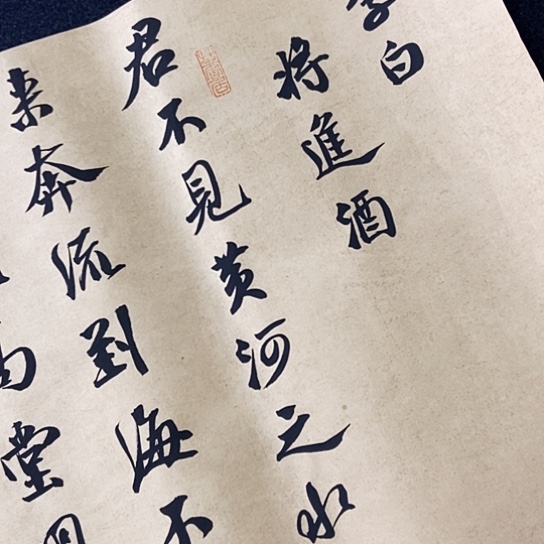 李白
將進酒
君不見黃河之水
来奔流到海不
高堂明